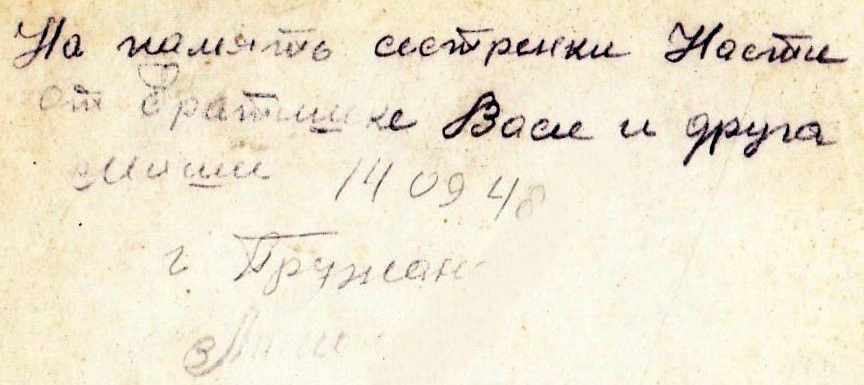 На память сестренки Насти
от братишке Васе и друга
Миши 14 09 48
г Пружан